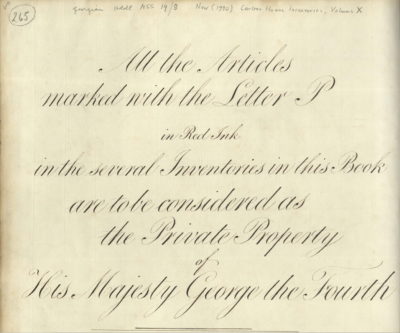 265
Georgian Addl MSS 19/3 Now (1990) Carlton House Inventories, Volume X
All the Articles
marked with the Letter P
in Red Ink
in the several Inventories in this Book
are to be considered as
the Private Property
of
His Majesty George the Fourth